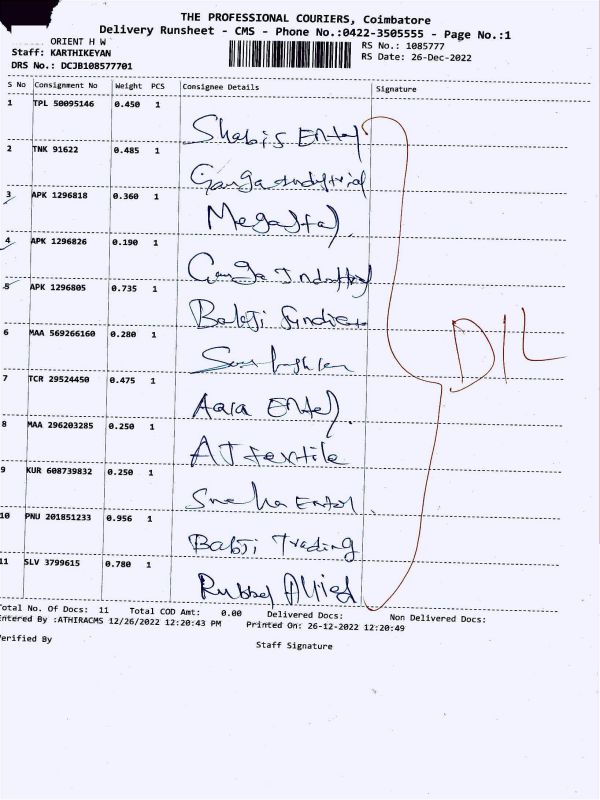 THE PROFESSIONAL COURIERS, Coimbatore
Delivery Runsheet - CMS - Phone No.:0422-3505555 - Page No.:1
ORIENT H W
RS No.: 1085777
Staff: KARTHIKEYAN
RS Date: 26-Dec-2022
DRS No.: DCJB108577701
S No Consignment No Weight PCS Consignee Details Signature
1 TPL 50095146 0.450 1
Shabis Enter
2 TNK 91622 0.485 1
Ganga Industrial
3 APK 1296818 0.360 1
4 APK 1296826 0.190 1
Ganga
5 APK 1296805 0.735 1
Balaji
6 MAA 569266160 0.280 1
7 TCR 29524450 0.475 1
8 MAA 296203285 0.250 1
AJ textile
9 KUR 608739832 0.250 1
Sneha
10 PNU 201851233 0.956 1
Trading
11 SLV 3799615 0.780 1
Allied
DIL
Total No. Of Docs: 11 Total COD Amt: 0.00 Delivered Docs: Non Delivered Docs:
Entered By :ATHIRACMS 12/26/2022 12:20:43 PM Printed On: 26-12-2022 12:20:49
Verified By
Staff Signature